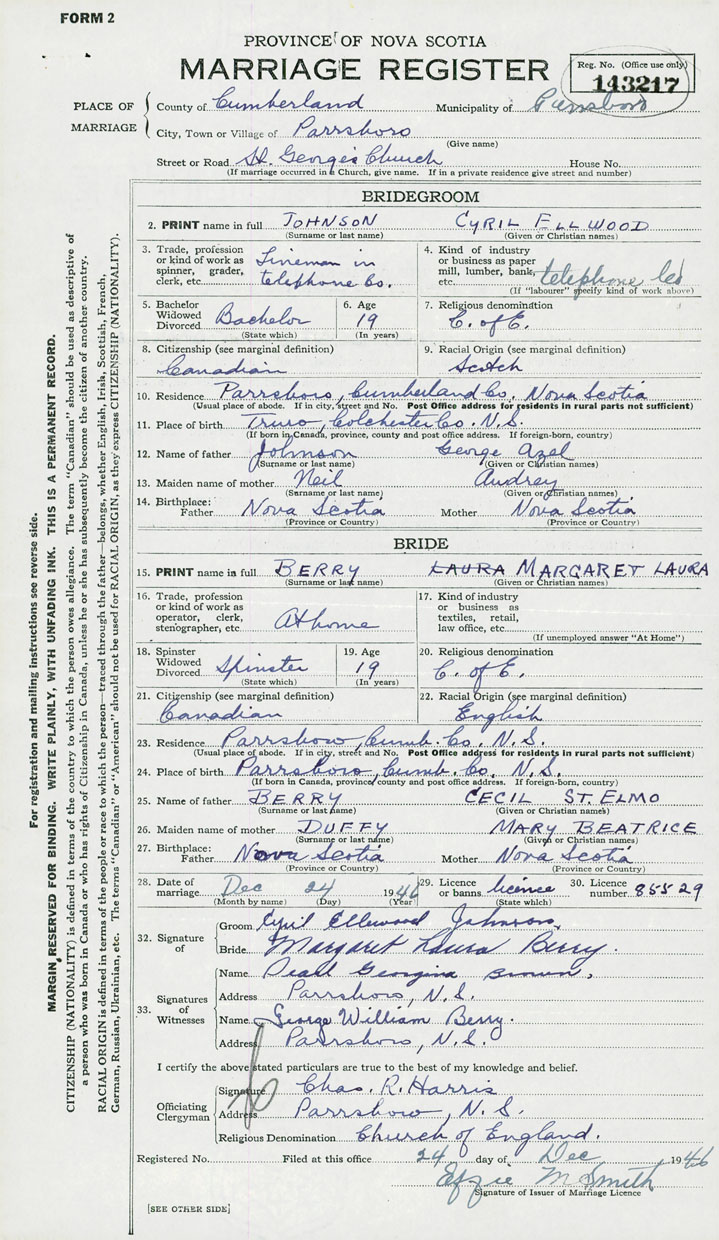 FORM 2
PROVINCE OF NOVA SCOTIA
MARRIAGE REGISTER
Reg. No. (Office use only)
143217
PLACE OF MARRIAGE
County of Cumberland Municipality of Parrsboro
City, Town or Village of Parrsboro
(Give name)
Street or Road St. George's Church House No.
(If marriage occurred in a Church, give name. If in a private residence give street and number)
BRIDEGROOM
2. PRINT name in full JOHNSON CYRIL ELLWOOD
(Surname or last name) (Given or Christian names)
3. Trade, profession or kind of work as spinner, grader, clerk, etc. Lineman in telephone Co.
4. Kind of industry or business as paper mill, lumber, bank, etc. telephone
(If "labourer" specify kind of work above)
5. Bachelor Widowed Divorced Bachelor
(State which)
6. Age 19
(In years)
7. Religious denomination C. of E.
8. Citizenship (see marginal definition) Canadian
9. Racial Origin (see marginal definition) Scotch
10. Residence Parrsboro, Cumberland Co, Nova Scotia
(Usual place of abode. If in city, street and No. Post Office address for residents in rural parts not sufficient)
11. Place of birth Truro, Colchester Co. N.S.
(If born in Canada, province, county and post office address. If foreign-born, country)
12. Name of father Johnson George Azel
(Surname or last name) (Given or Christian names)
13. Maiden name of mother Neil Audrey
(Surname or last name) (Given or Christian names)
14. Birthplace: Father Nova Scotia Mother Nova Scotia
(Province or Country) (Province or Country)
BRIDE
15. PRINT name in full BERRY LAURA MARGARET LAURA
(Surname or last name) (Given or Christian names)
16. Trade, profession or kind of work as operator, clerk, stenographer, etc. At home
17. Kind of industry or business as textiles, retail, law office, etc.
(If unemployed answer "At Home")
18. Spinster Widowed Divorced Spinster
(State which)
19. Age 19
(In years)
20. Religious denomination C. of E.
21. Citizenship (see marginal definition) Canadian
22. Racial Origin (see marginal definition) English
23. Residence Parrsboro, Cumb. Co. N.S.
(Usual place of abode. If in city, street and No. Post Office address for residents in rural parts not sufficient)
24. Place of birth Parrsboro, Cumb. Co. N.S.
(If born in Canada, province, county and post office address. If foreign-born, country)
25. Name of father BERRY CECIL ST. ELMO
(Surname or last name) (Given or Christian names)
26. Maiden name of mother DUFFY MARY BEATRICE
(Surname or last name) (Given or Christian names)
27. Birthplace: Father Nova Scotia Mother Nova Scotia
(Province or Country) (Province or Country)
28. Date of marriage Dec 24 1946
(Month by name) (Day) (Year)
29. Licence or banns licence
(State which)
30. Licence number 85529
32. Signature of
Groom Cyril Ellwood Johnson.
Bride Margaret Laura Berry.
33. Signatures of Witnesses
Name Pearl Georgina Brown.
Address Parrsboro, N.S.
Name George William Berry.
Address Parrsboro, N.S.
I certify the above stated particulars are true to the best of my knowledge and belief.
Officiating Clergyman
Signature Chas. R. Harris
Address Parrsboro, N.S.
Religious Denomination Church of England.
Registered No. Filed at this office 24 day of Dec 1946
Effie M Smith
Signature of Issuer of Marriage Licence
[SEE OTHER SIDE]
For registration and mailing instructions see reverse side.
MARGIN RESERVED FOR BINDING. WRITE PLAINLY, WITH UNFADING INK. THIS IS A PERMANENT RECORD.
CITIZENSHIP (NATIONALITY) is defined in terms of the country to which the person owes allegiance. The term "Canadian" should be used as descriptive of
a person who was born in Canada or who has rights of Citizenship in Canada, unless he or she has subsequently become the citizen of another country.
RACIAL ORIGIN is defined in terms of the people or race to which the person—traced through the father—belongs, whether English, Irish, Scottish, French,
German, Russian, Ukrainian, etc. The terms "Canadian" or "American" should not be used for RACIAL ORIGIN, as they express CITIZENSHIP (NATIONALITY).